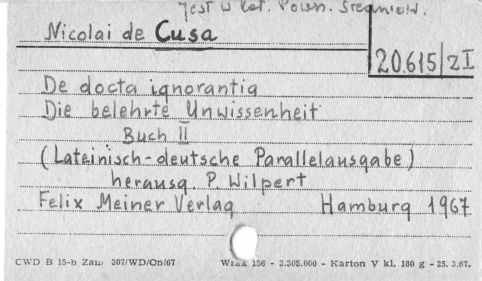 Jest w kat. Pown.
Nicolai de Cusa
20.615/ZI
De docta ignorantia
Die belehrte Unwissenheit
Buch II
(Lateinisch-deutsche Parallelausgabe)
herausg. P. Wilpert
Felix Meiner Verlag Hamburg 1967
CWD B 15-b Zam. 307/WD/On/67 156 - 3.305.000 - Karton V kl. 180 g - 25.3.67.